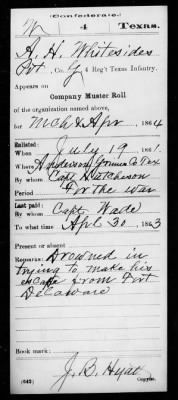 (Confederate.)
W 4 Texas.
A. H. Whitesides
Pvt., Co. G, 4 Reg't Texas Infantry.
Appears on
Company Muster Roll
of the organization named above,
for Mch & Apr, 1864
Enlisted:
When July 19, 1861
Where Anderson Grimes Co Tex
By whom Capt Hutcheson
Period For the war
Last paid:
By whom Capt. Wade
To what time Apl 30, 1863
Present or absent
Remarks: Drowned in
trying to make his
escape from Fort
Delaware
Book mark:
J. B. Hyatt
(642) Copyist.